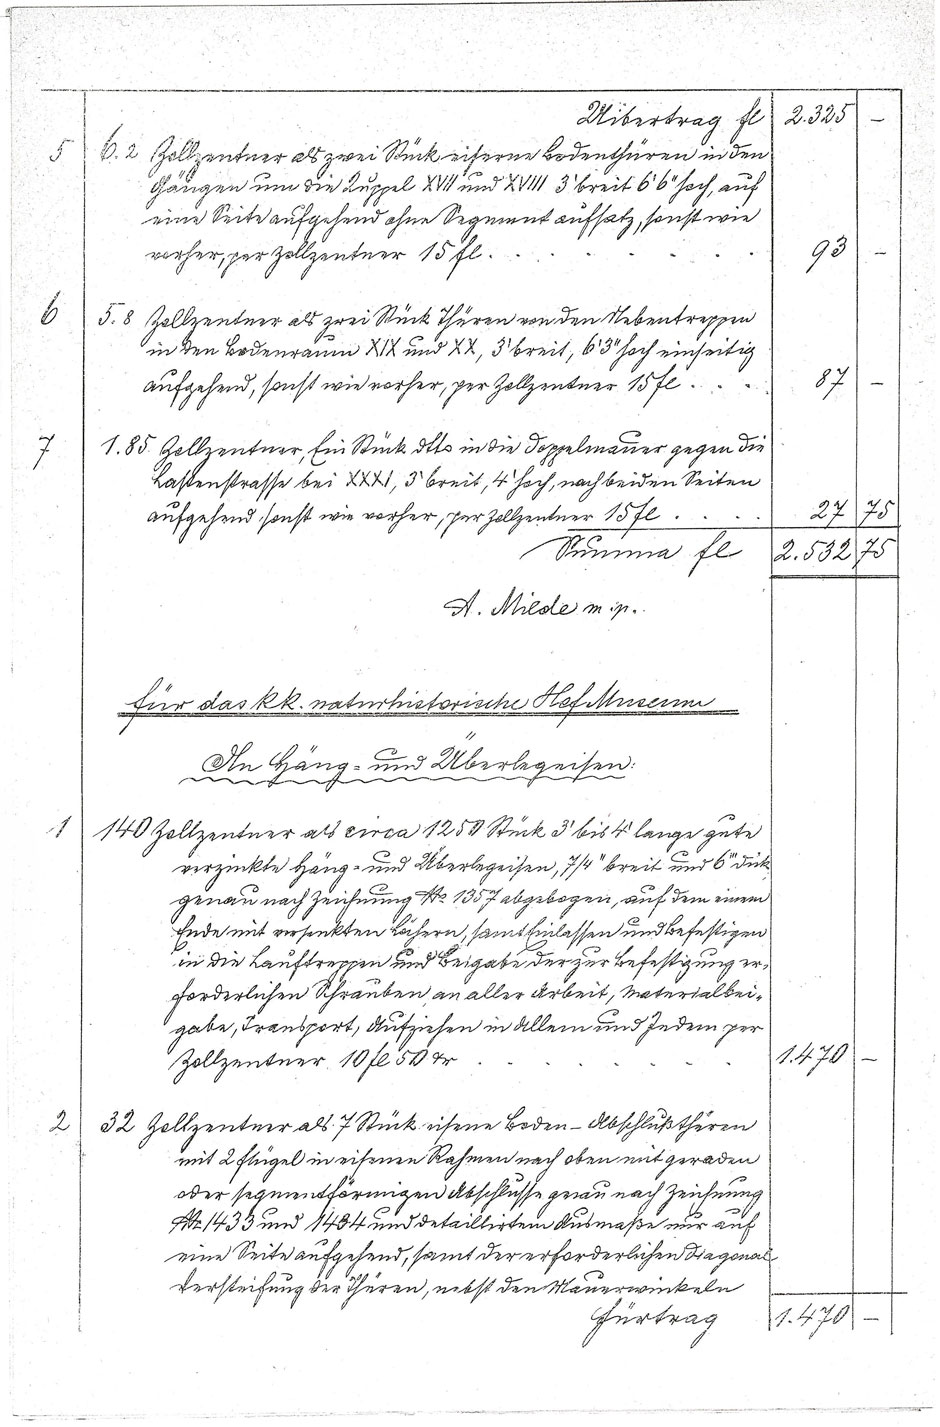 Uibertrag fl 2.325 –
5 6.2 Zollzentner als zwei Stück eiserne Bodenthüren in den
Gängen um die Kuppel XVII und XVIII 3' breit 6'6" hoch, auf
eine Seite aufgehend ohne Segmentaufsatz, sonst wie
vorher, per Zollzentner 15 fl. . . . . . . 93 –
6 5.8 Zollzentner als zwei Stück Thüren von den Nebentreppen
in den Bodenraum XIX und XX, 3' breit, 6'3" hoch einseitig
aufgehend, sonst wie vorher, per Zollzentner 15 fl. . . . 87 –
7 1.85 Zollzentner, Ein Stück dtto in die Doppelmauer gegen die
Lastenstrasse bei XXXI, 3' breit, 4' hoch, nach beiden Seiten
aufgehend sonst wie vorher, per Zollzentner 15 fl . . . . 27 75
Summa fl 2.532 75
A. Milde m.p.
für das kk. naturhistorische Hof Museum
An Häng- und Überlegeisen:
1 140 Zollzentner als circa 1250 Stück 3' bis 4' lange gute
verzinkte Häng- und Überlegeisen, 7/4" breit und 6"' dick
genau nach Zeichnung No 1357 abgebogen, auf dem einem
Ende mit versenkten Löchern, samt Einlassen und Befestigen
in die Lauftreppen und Beigabe der zur Befestigung er-
forderlichen Schrauben, an aller Arbeit, Materialbei-
gabe, Transport, Aufziehen in Allem und Jedem per
Zollzentner 10 fl 50 Kr . . . . . . 1.470 –
2 32 Zollzentner als 7 Stück eisene Boden-Abschlußthüren
mit 2 Flügel in eisenen Rahmen nach oben mit geraden
oder segmentförmigen Abschlusse genau nach Zeichnung
No 1433 und 1434 und detaillirtem Ausmaße nur auf
eine Seite aufgehend, samt der erforderlichen Diagonal-
Versteifung der Thüren, nebst den Mauerwinkeln
Fürtrag 1.470 –